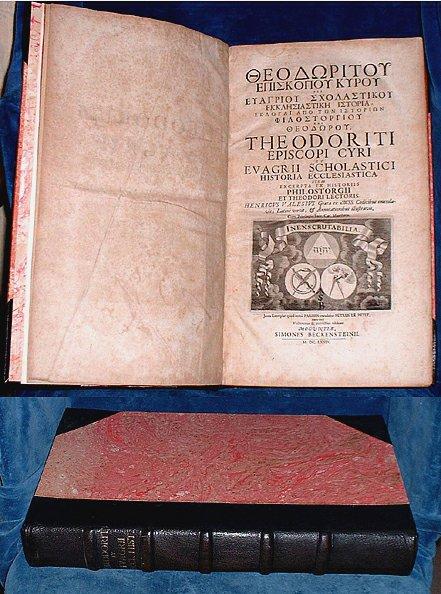 ΘΕΟΔΩΡΙΤΟΥ
ΕΠΙΣΚΟΠΟΥ ΚΥΡΟΥ
ΚΑΙ
ΕΥΑΓΡΙΟΥ ΣΧΟΛΑΣΤΙΚΟΥ
ΕΚΚΛΗΣΙΑΣΤΙΚΗ ΙΣΤΟΡΙΑ.
ΕΚΛΟΓΑΙ ΑΠΟ ΤΩΝ ΙΣΤΟΡΙΩΝ
ΦΙΛΟΣΤΟΡΓΙΟΥ
ΚΑΙ
ΘΕΟΔΩΡΟΥ
THEODORITI
EPISCOPI CYRI
ET
EVAGRII SCHOLASTICI
HISTORIA ECCLESIASTICA
ITEM
EXCERPTA EX HISTORIIS
PHILOSTORGII
ET THEODORI LECTORIS.
HENRICUS VALESIUS Græca ex MSS. Codicibus emenda-
vit, Latine vertit, & Annotationibus illustravit.
INENSCRUTABILIA
MOGUNTIÆ,
SIMONIS BECKENSTEINII.
M. DC. LXXIX.
THEODORITI
ET
EVAGRII
HIST.